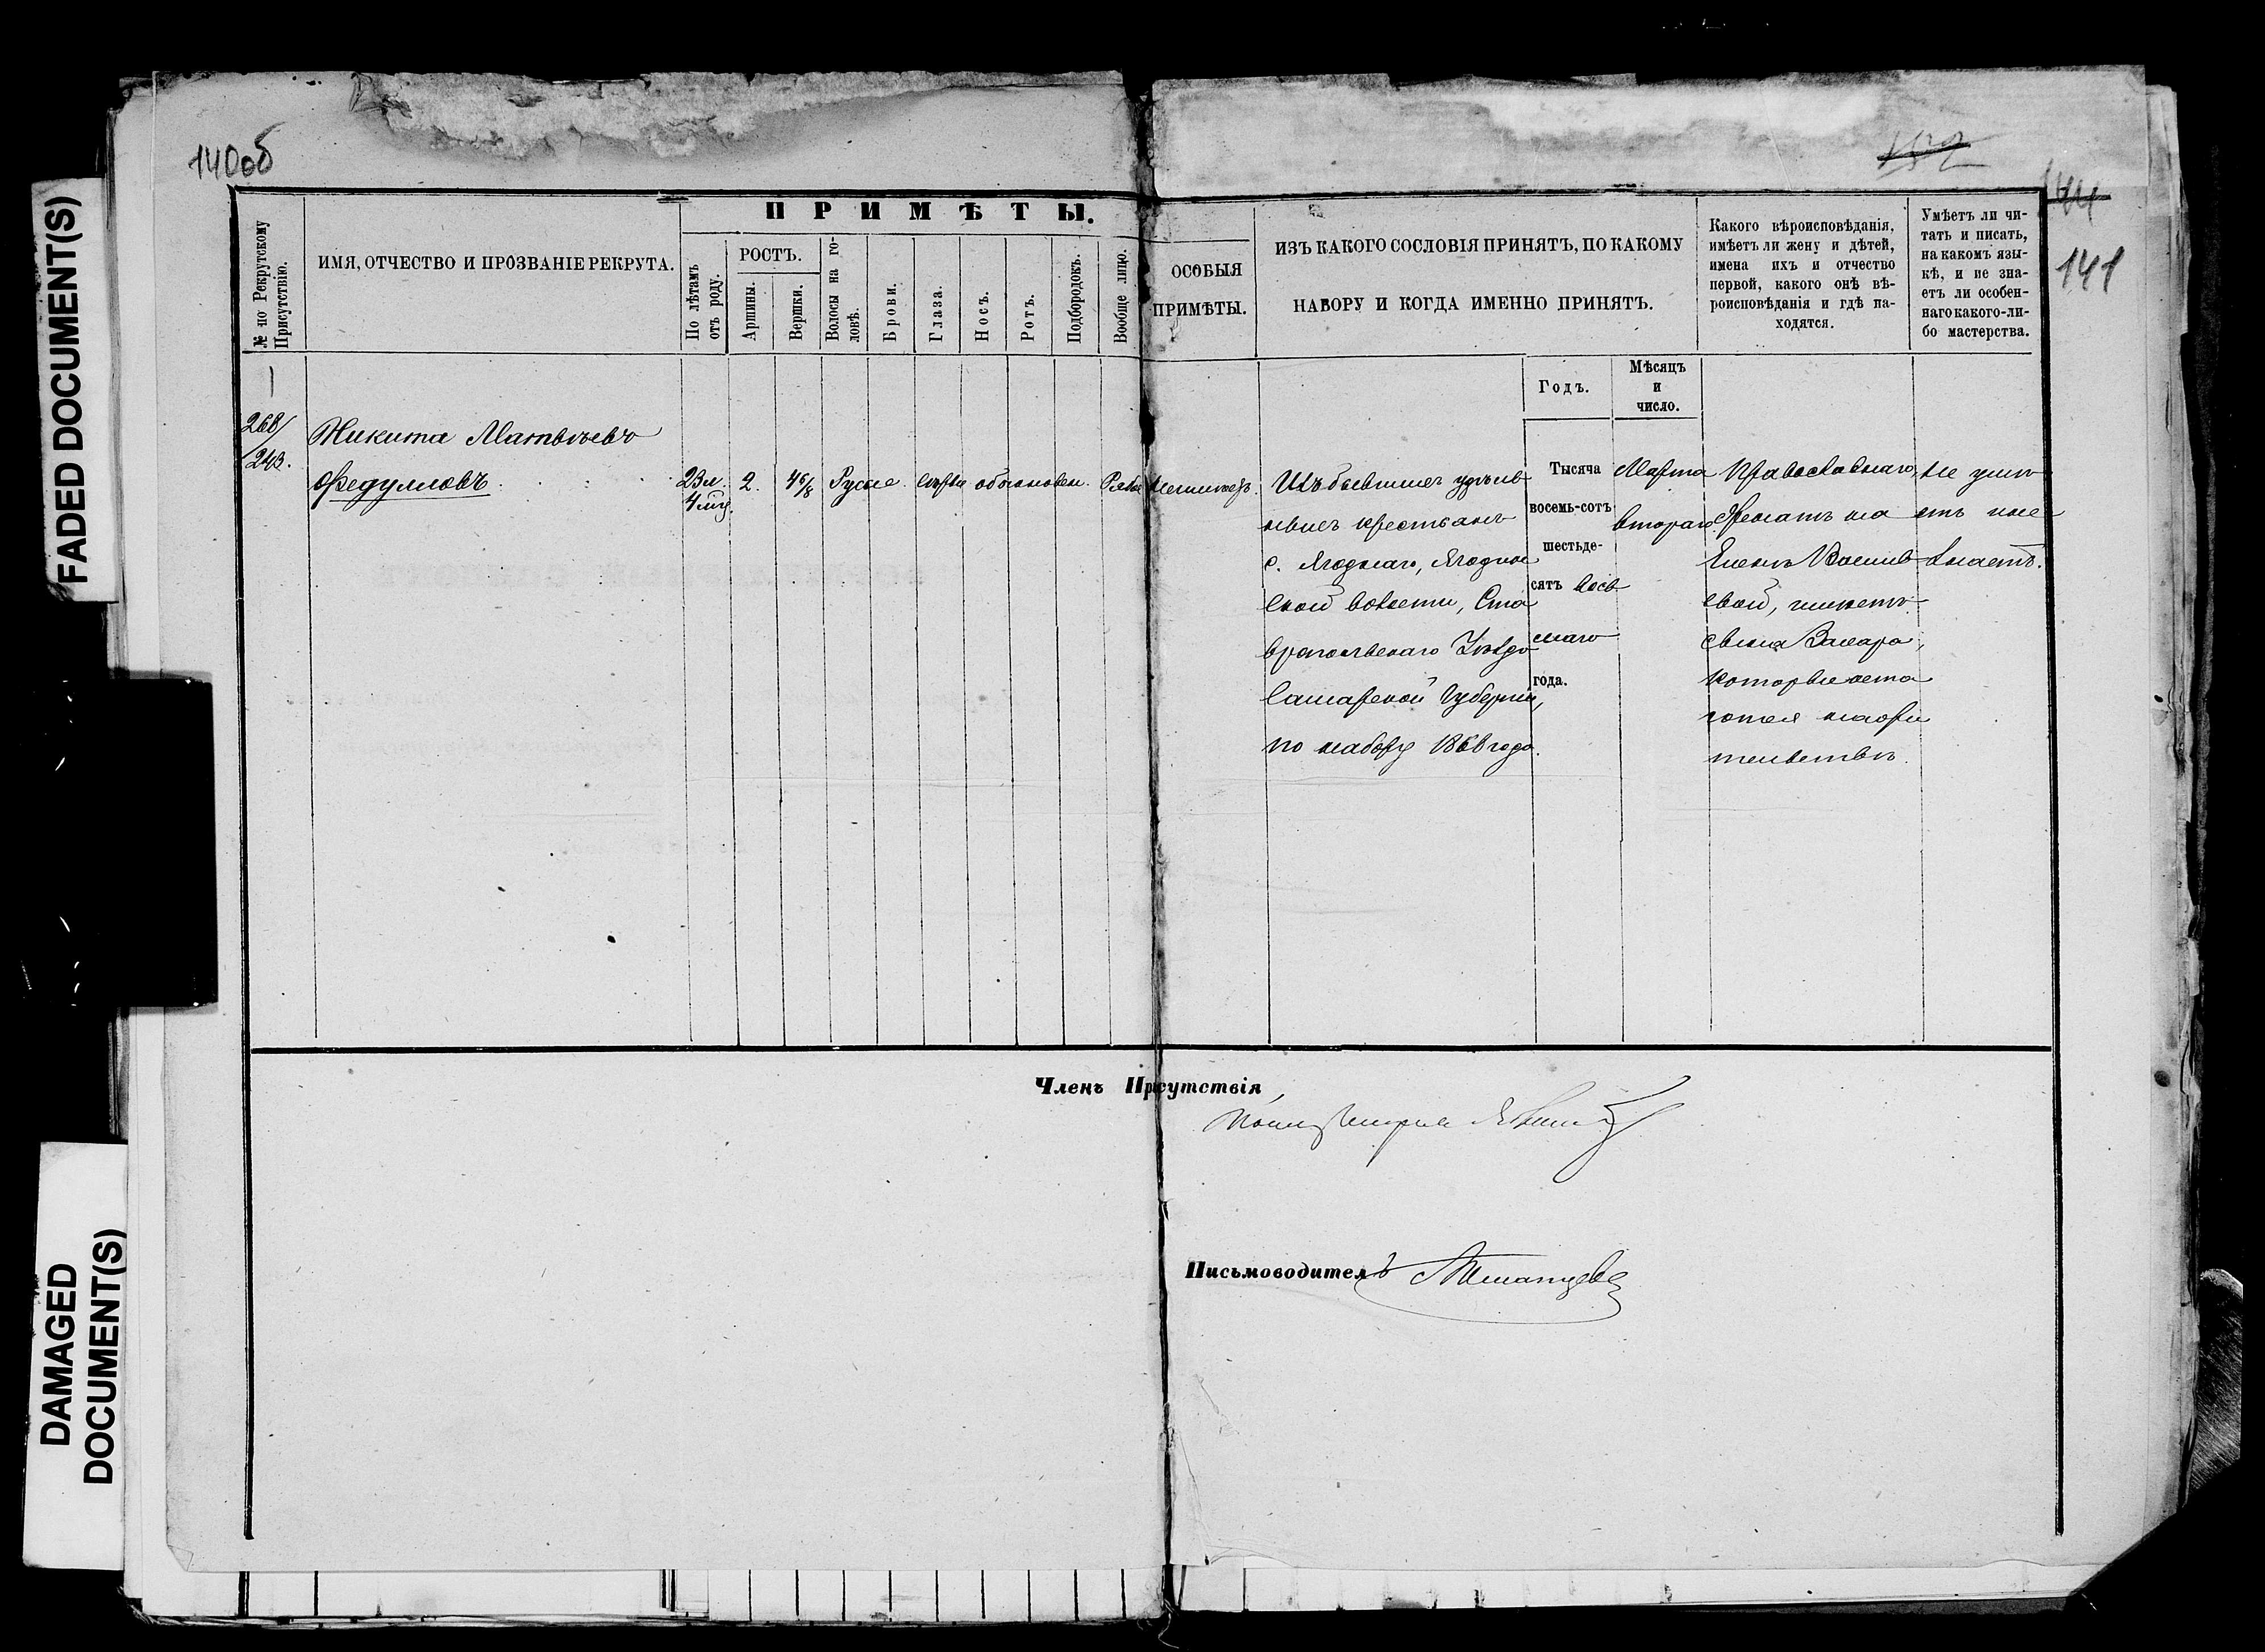 FADED DOCUMENT(S)
DAMAGED
DOCUMENT(S)
140об
144
141
№ по Рекрутскому
Присутствію.
ИМЯ, ОТЧЕСТВО И ПРОЗВАНІЕ РЕКРУТА.
ПРИМѢТЫ.
По лѣтамъ
отъ роду.
РОСТЪ.
Аршины.
Вершки.
Волосы на го-
ловѣ.
Брови.
Глаза.
Носъ.
Ротъ.
Подбородокъ.
Вообще лицо.
ОСОБЫЯ
ПРИМѢТЫ.
ИЗЪ КАКОГО СОСЛОВІЯ ПРИНЯТЪ, ПО КАКОМУ
НАБОРУ И КОГДА ИМЕННО ПРИНЯТЪ.
Какого вѣроисповѣданія,
имѣетъ ли жену и дѣтей,
имена ихъ и отчество
первой, какого онѣ вѣ-
роисповѣданія и гдѣ на-
ходятся.
Умѣетъ ли чи-
тать и писать,
на какомъ язы-
кѣ, и не зна-
етъ ли особен-
наго какого-ли-
бо мастерства.
268/
243.
Никита Матвѣевъ
Федуловъ
23 л.
4 мѣ.
2.
4 6/8
Русые
сѣрые
обыкновен.
Рябое
Неимѣетъ.
Изъ бывшихъ удѣль
ныхъ крестьянъ
с. Ягоднаго, Ягодин
ской волости, Ста
вропольскаго Уѣзда
Самарской Губерніи,
по набору 1868 года.
Годъ.
Тысяча
восемь-сотъ
шестьде-
сятъ вось
маго
года.
Мѣсяцъ
и
число.
Марта
втораго
Православнаго,
Женатъ на
Еленѣ Василь
евой, имѣетъ
сына Захара,
которые оста
ются на ро
тельствѣ.
Не умѣ
етъ и не
знаетъ.
Членъ Присутствія
Письмоводитель